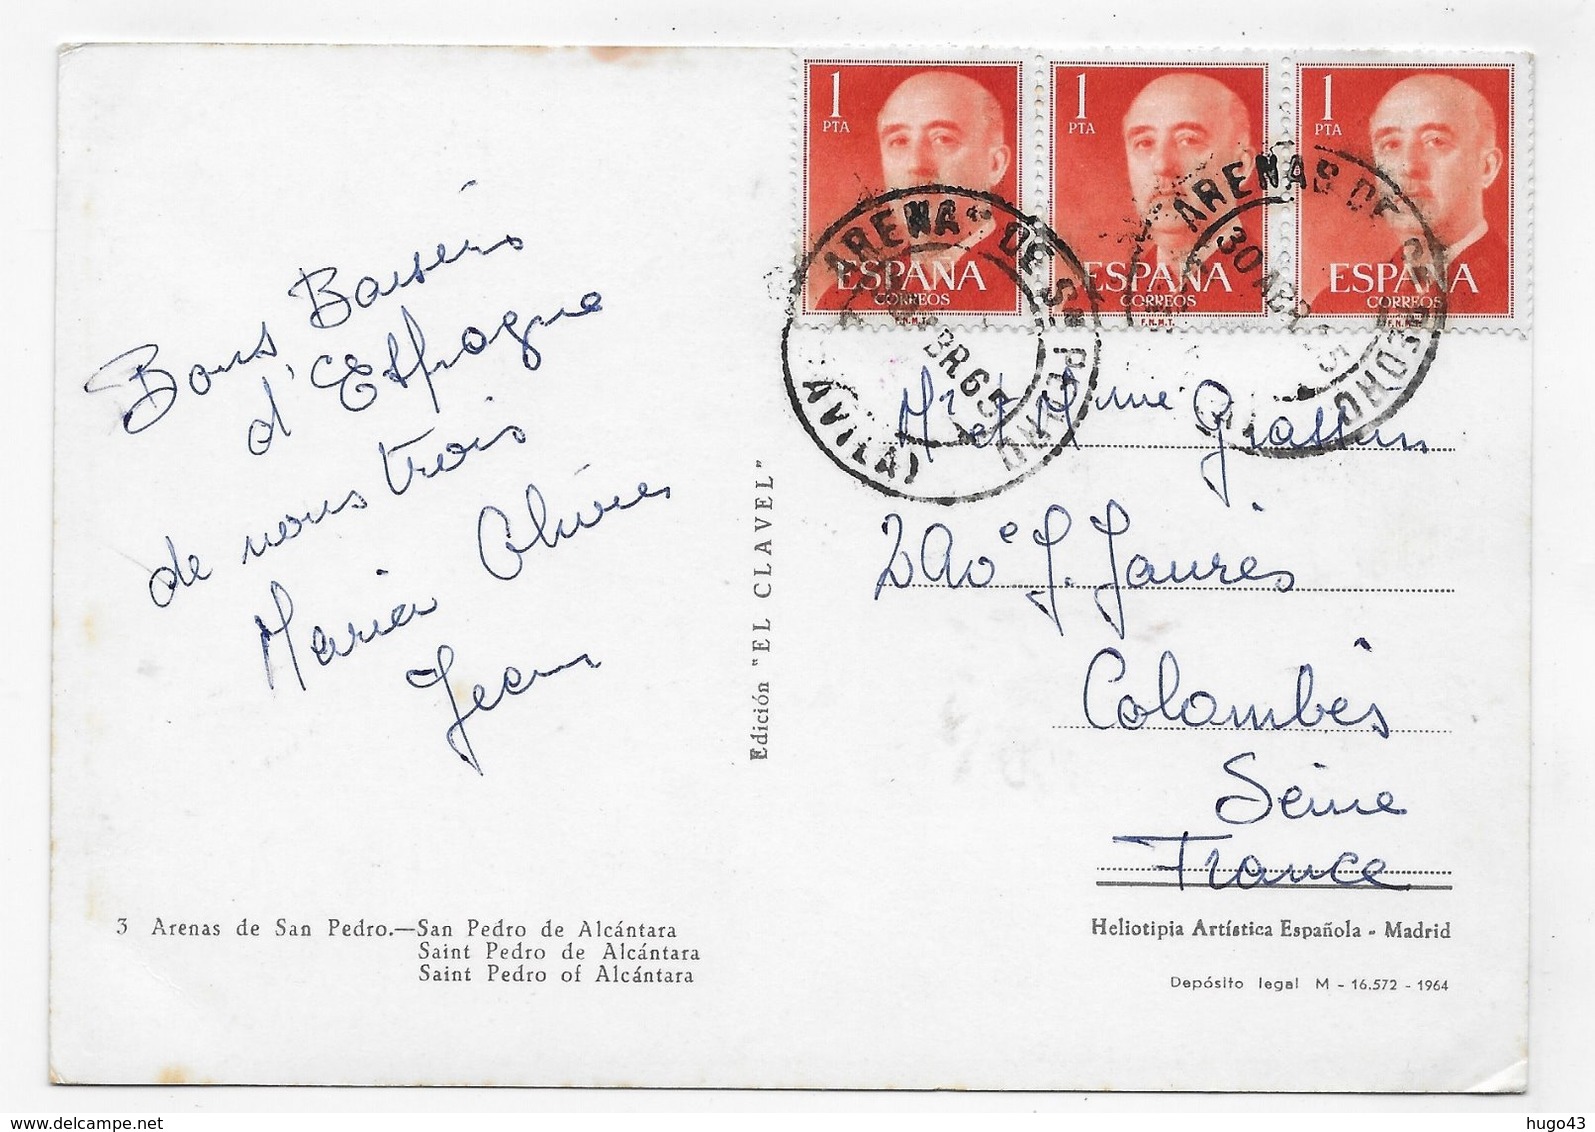 Bons Baisers
d'Espagne
de nous trois
Maria Olivier
Jean
3 Arenas de San Pedro.—San Pedro de Alcántara
Saint Pedro de Alcántara
Saint Pedro of Alcántara
Edición "EL CLAVEL"
1 PTA
ESPAÑA
CORREOS
F.N.M.T.
1 PTA
ESPAÑA
CORREOS
F.N.M.T.
1 PTA
ESPAÑA
CORREOS
ARENAS DE Sn PEDRO
ABR.65
(AVILA)
ARENAS DE
30 ABR 65
Mr et Mme
J. Jaurès
Colombes
Seine
France
Heliotipia Artística Española - Madrid
Depósito legal M - 16.572 - 1964
hugo43